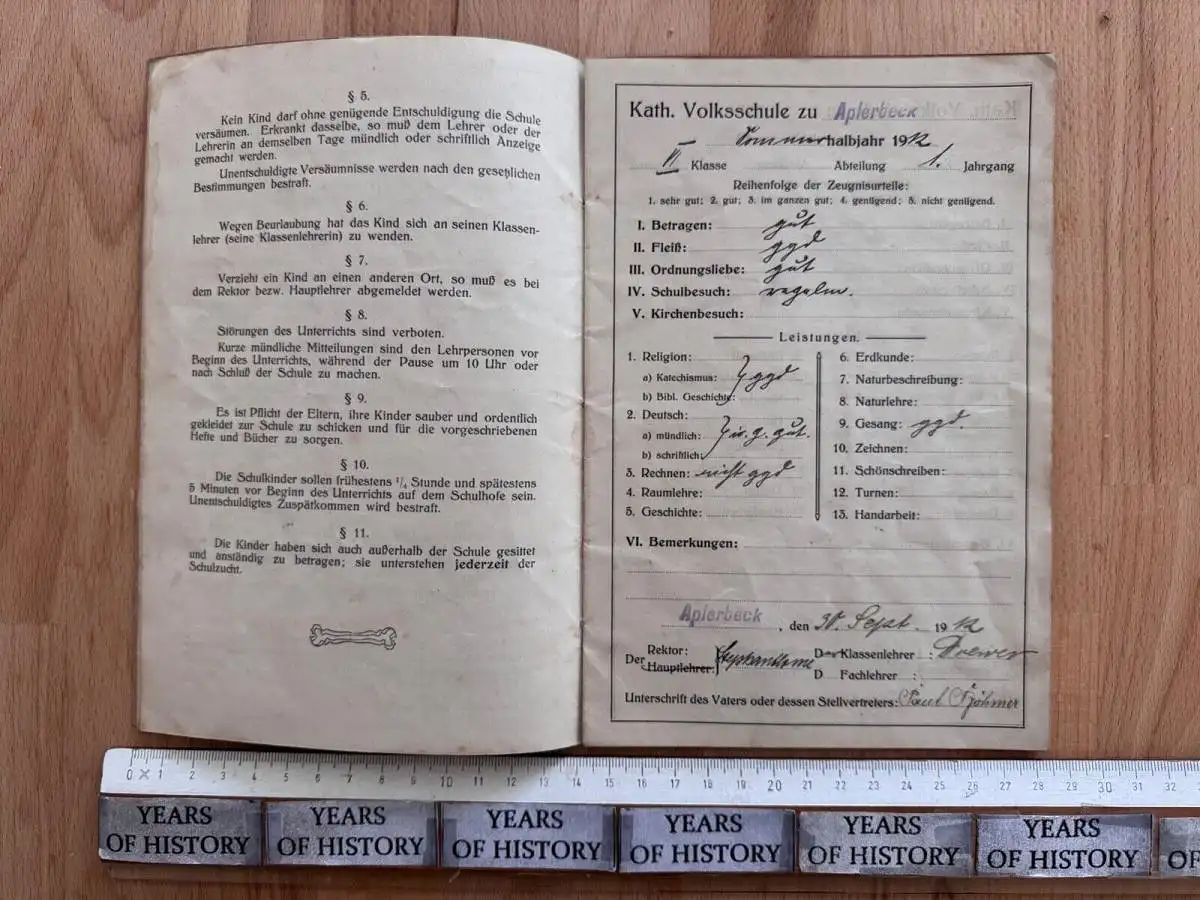 § 5.
Kein Kind darf ohne genügende Entschuldigung die Schule
versäumen. Erkrankt dasselbe, so muß dem Lehrer oder der
Lehrerin an demselben Tage mündlich oder schriftlich Anzeige
gemacht werden.
Unentschuldigte Versäumnisse werden nach den gesetzlichen
Bestimmungen bestraft.
§ 6.
Wegen Beurlaubung hat das Kind sich an seinen Klassen-
lehrer (seine Klassenlehrerin) zu wenden.
§ 7.
Verzieht ein Kind an einen anderen Ort, so muß es bei
dem Rektor bezw. Hauptlehrer abgemeldet werden.
§ 8.
Störungen des Unterrichts sind verboten.
Kurze mündliche Mitteilungen sind den Lehrpersonen vor
Beginn des Unterrichts, während der Pause um 10 Uhr oder
nach Schluß der Schule zu machen.
§ 9.
Es ist Pflicht der Eltern, ihre Kinder sauber und ordentlich
gekleidet zur Schule zu schicken und für die vorgeschriebenen
Hefte und Bücher zu sorgen.
§ 10.
Die Schulkinder sollen frühestens ¼ Stunde und spätestens
5 Minuten vor Beginn des Unterrichts auf dem Schulhofe sein.
Unentschuldigtes Zuspätkommen wird bestraft.
§ 11.
Die Kinder haben sich auch außerhalb der Schule gesittet
und anständig zu betragen; sie unterstehen jederzeit der
Schulzucht.
Kath. Volksschule zu Aplerbeck
Sommerhalbjahr 1912
VI Klasse Abteilung 1. Jahrgang
Reihenfolge der Zeugnisurteile:
1. sehr gut; 2. gut; 3. im ganzen gut; 4. genügend; 5. nicht genügend.
I. Betragen: gut
II. Fleiß: ggd
III. Ordnungsliebe: gut
IV. Schulbesuch: regelm.
V. Kirchenbesuch:
Leistungen.
1. Religion:
a) Katechismus: ggd
b) Bibl. Geschichte:
2. Deutsch:
a) mündlich: i. g. gut.
b) schriftlich:
3. Rechnen: nicht ggd
4. Raumlehre:
5. Geschichte:
6. Erdkunde:
7. Naturbeschreibung:
8. Naturlehre:
9. Gesang: ggd.
10. Zeichnen:
11. Schönschreiben:
12. Turnen:
13. Handarbeit:
VI. Bemerkungen:
Aplerbeck, den 30. Sept. 1912
Rektor:
Der Hauptlehrer:
Der Klassenlehrer: Drewer
D Fachlehrer:
Unterschrift des Vaters oder dessen Stellvertreters: Paul Böhmer
0 1 2 3 4 5 6 7 8 9 10 11 12 13 14 15 16 17 18 19 20 21 22 23 24 25 26 27 28 29 30 31 32
YEARS OF HISTORY
YEARS OF HISTORY
YEARS OF HISTORY
YEARS OF HISTORY
YEARS OF HISTORY
YEARS OF HISTORY
OF